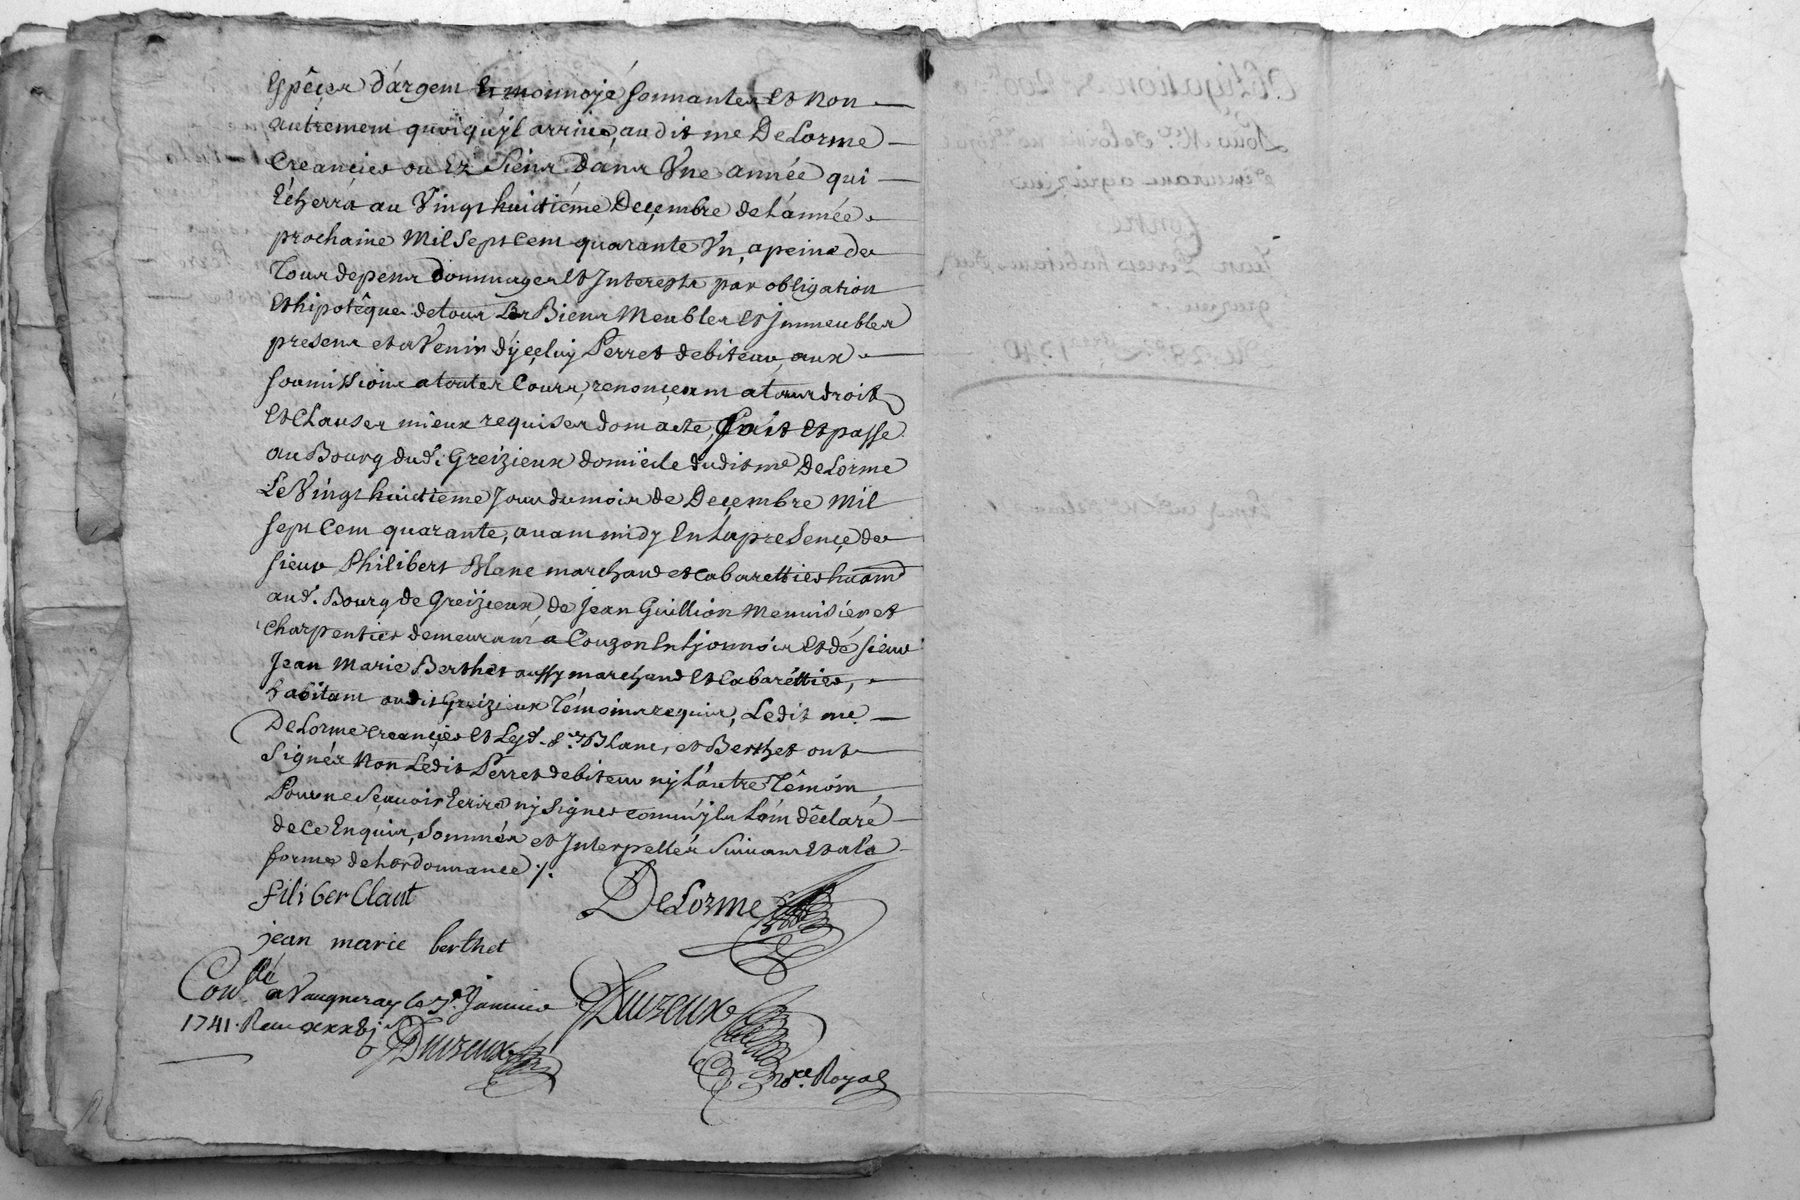 Espêces d'argent et monnoyé sonnantes et non
autrement quoiqu'jl arrive, audit me DeLorme
Creancier ou Ez Siens dans Vne année qui
Echerra au Vingt huictiéme Decembre de l'année
prochaine Mil Sept Cent quarante Vn, a peine de
Tous depens dommages et Interests par obligation
Et hipotêque de tous Les Biens Meubles et jmmeubles
presens et a Venir d'jceluy Perret debiteur, aux
soumissions a toutes Cours, renonçant a tous droits
Et Clauses mieux requises dont acte, fait et passé
au Bourg dud. Greizieux domicile dudit me DeLorme
Le Vingt huictieme Jour du mois de Decembre Mil
sept Cent quarante, avant midy En la presence de
sieur Philibert Blanc marchand et Cabarettier habitant
aud. Bourg de Greizieux de Jean Guillion Menuisier et
Charpentier demeurant a Couzon En Lyonnois Et de sieur
Jean Marie Berthet aussy marchand et Cabarettier,
habitant audit Greizieux Témoins requis, Ledit me
DeLorme creancier et Lesd. srs Blanc, et Berthet ont
Signés Non Ledit Perret debiteur nj L'autre Témoin
Pour ne Sçavoir Ecrire nj Signer comm'jls L'ont déclaré
de ce Enquis, Sommés et Interpellés Suivant Et a la
forme de L'ordonnance ./.
DeLorme
jean marie berthet
Conllé a Vaugneray le 7e Janvier
1741. Reçu
Duizeux
Duizeux
Nore. Royal
Obligation de
Pour Me. DeLorme
demeurant a greizieu
Contre
Jean Perret habitant dud.
greizieu
Du 28e Xbre 1740